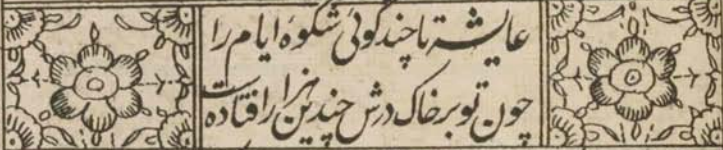 عایشه تا چند گوئی شکوهٔ ایام را
چون تو بر خاک درش چندین هزار افتاده است